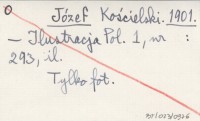 Józef Kościelski. 1901.
— Ilustracja Pol. 1, nr :
293, il.
Tylko fot.